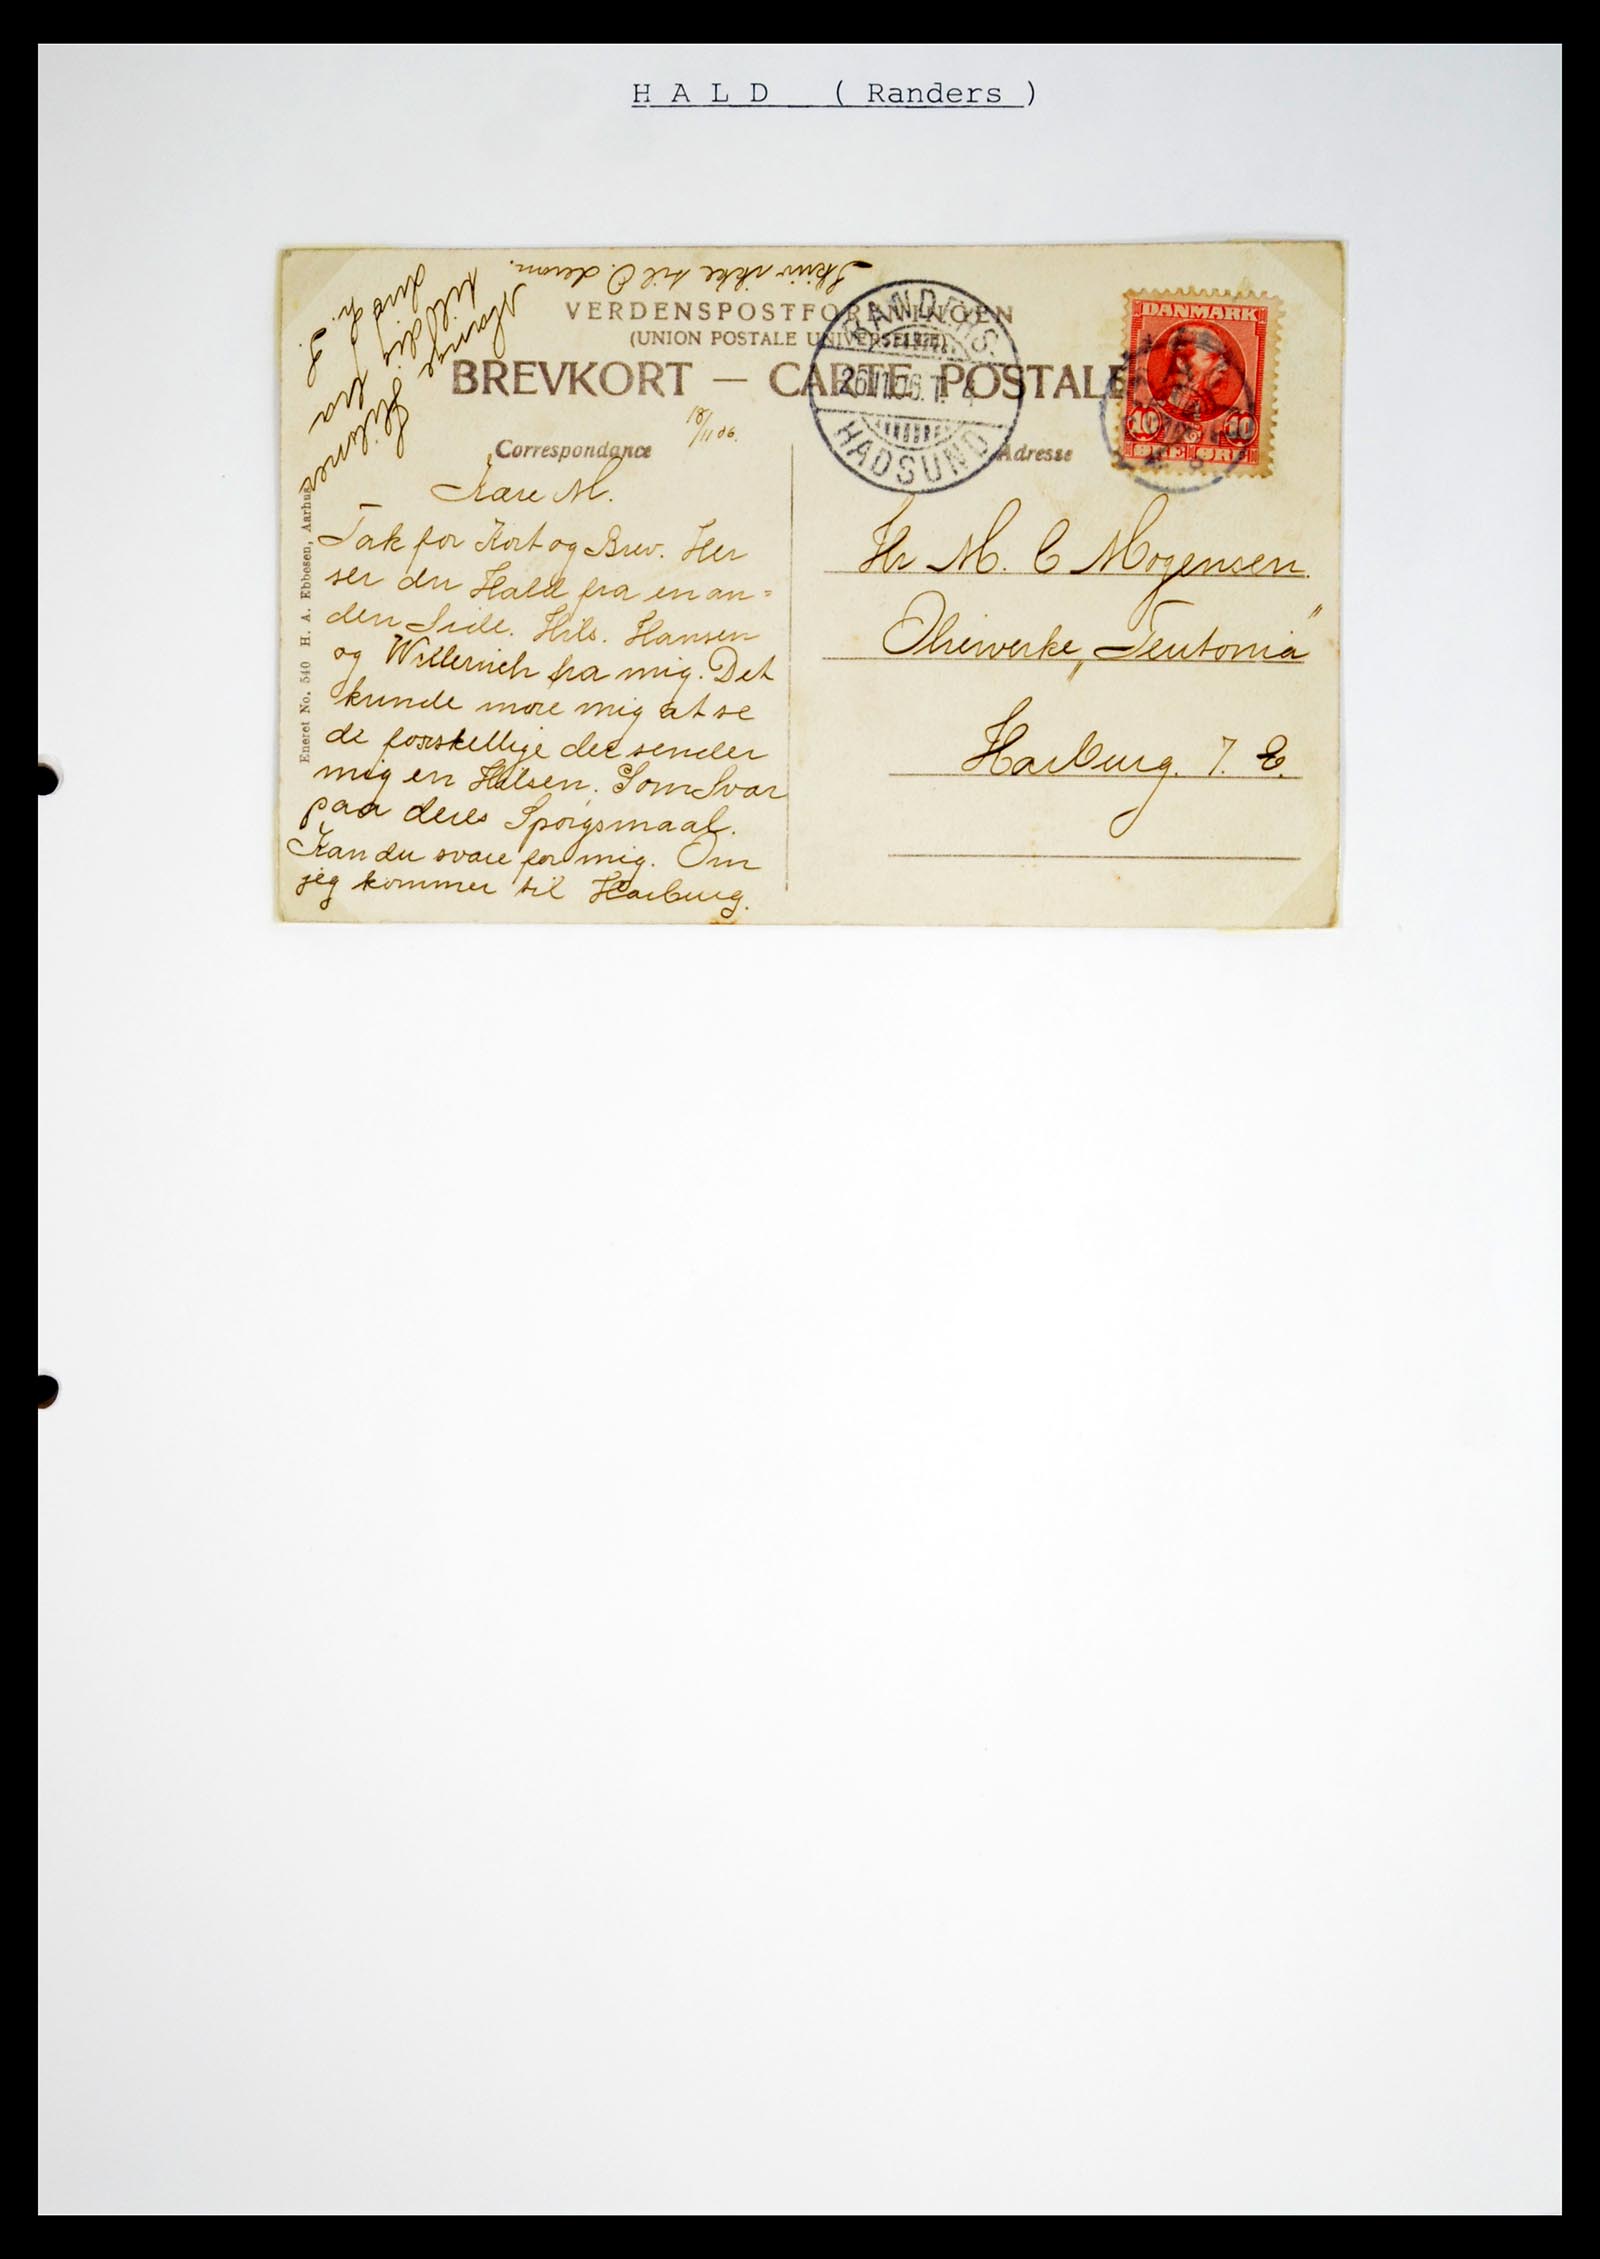 HALD (Randers)
Skriv ikke til O. derom.
Mange
Hilsner
til dig fra
din
VERDENSPOSTFORENINGEN
(UNION POSTALE UNIVERSELLE)
BREVKORT — CARTE POSTALE
RANDERS.
26.11.06.
HADSUND
DANMARK
10 10
ØRE ØRE
18/11 06.
Correspondance
Adresse
Kære M.
Tak for Kort og Brev. Her
ser du Hald fra en an=
den Side. Hils. Hansen
og fra mig. Det
kunde more mig at se
de forskellige der sender
mig en Hilsen. Som Svar
paa deres Spörgsmaal.
Kan du svare for mig. Om
jeg kommer til Harburg.
Eneret No. 540 H. A. Ebbesen, Aarhus.
Hr M. C Mogensen.
„Teutonia"
Harburg. a. E.